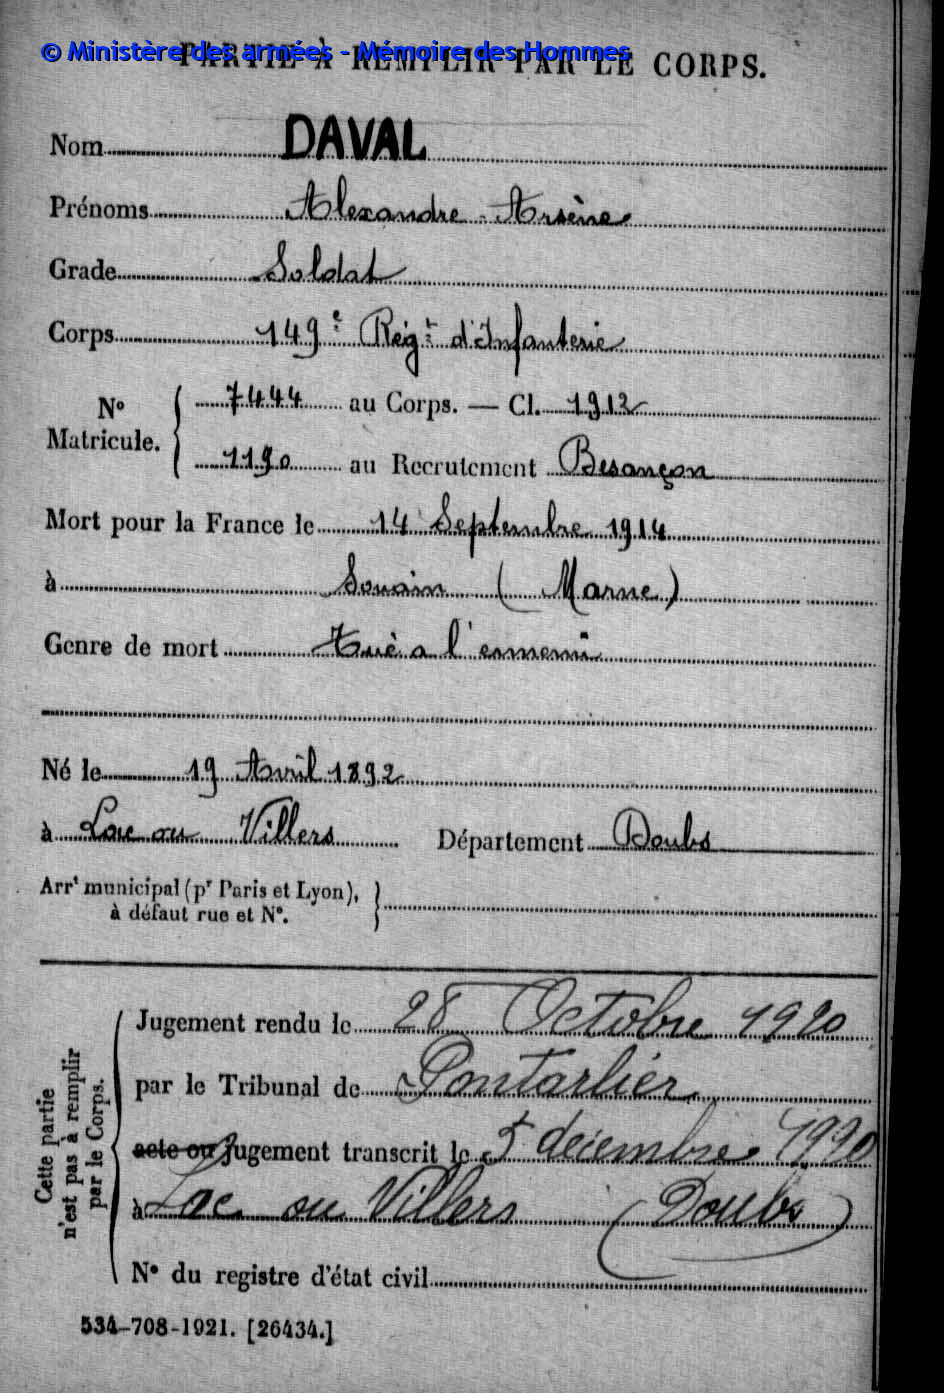 © Ministère des armées - Mémoire des Hommes
PARTIE À REMPLIR PAR LE CORPS.
Nom DAVAL
Prénoms Alexandre Arsène
Grade Soldat
Corps 149e Régt d'Infanterie
No Matricule. 7444 au Corps. — Cl. 1912
1190 au Recrutement Besançon
Mort pour la France le 14 Septembre 1914
à Souain (Marne)
Genre de mort Tué a l'ennemi
Né le 19 Avril 1892
à Lac ou Villers Département Doubs
Arrt municipal (pr Paris et Lyon),
à défaut rue et No.
Cette partie
n'est pas à remplir
par le Corps.
Jugement rendu le 28 Octobre 1920
par le Tribunal de Pontarlier
acte ou jugement transcrit le 5 décembre 1920
à Lac ou Villers (Doubs)
No du registre d'état civil
534-708-1921. [26434.]